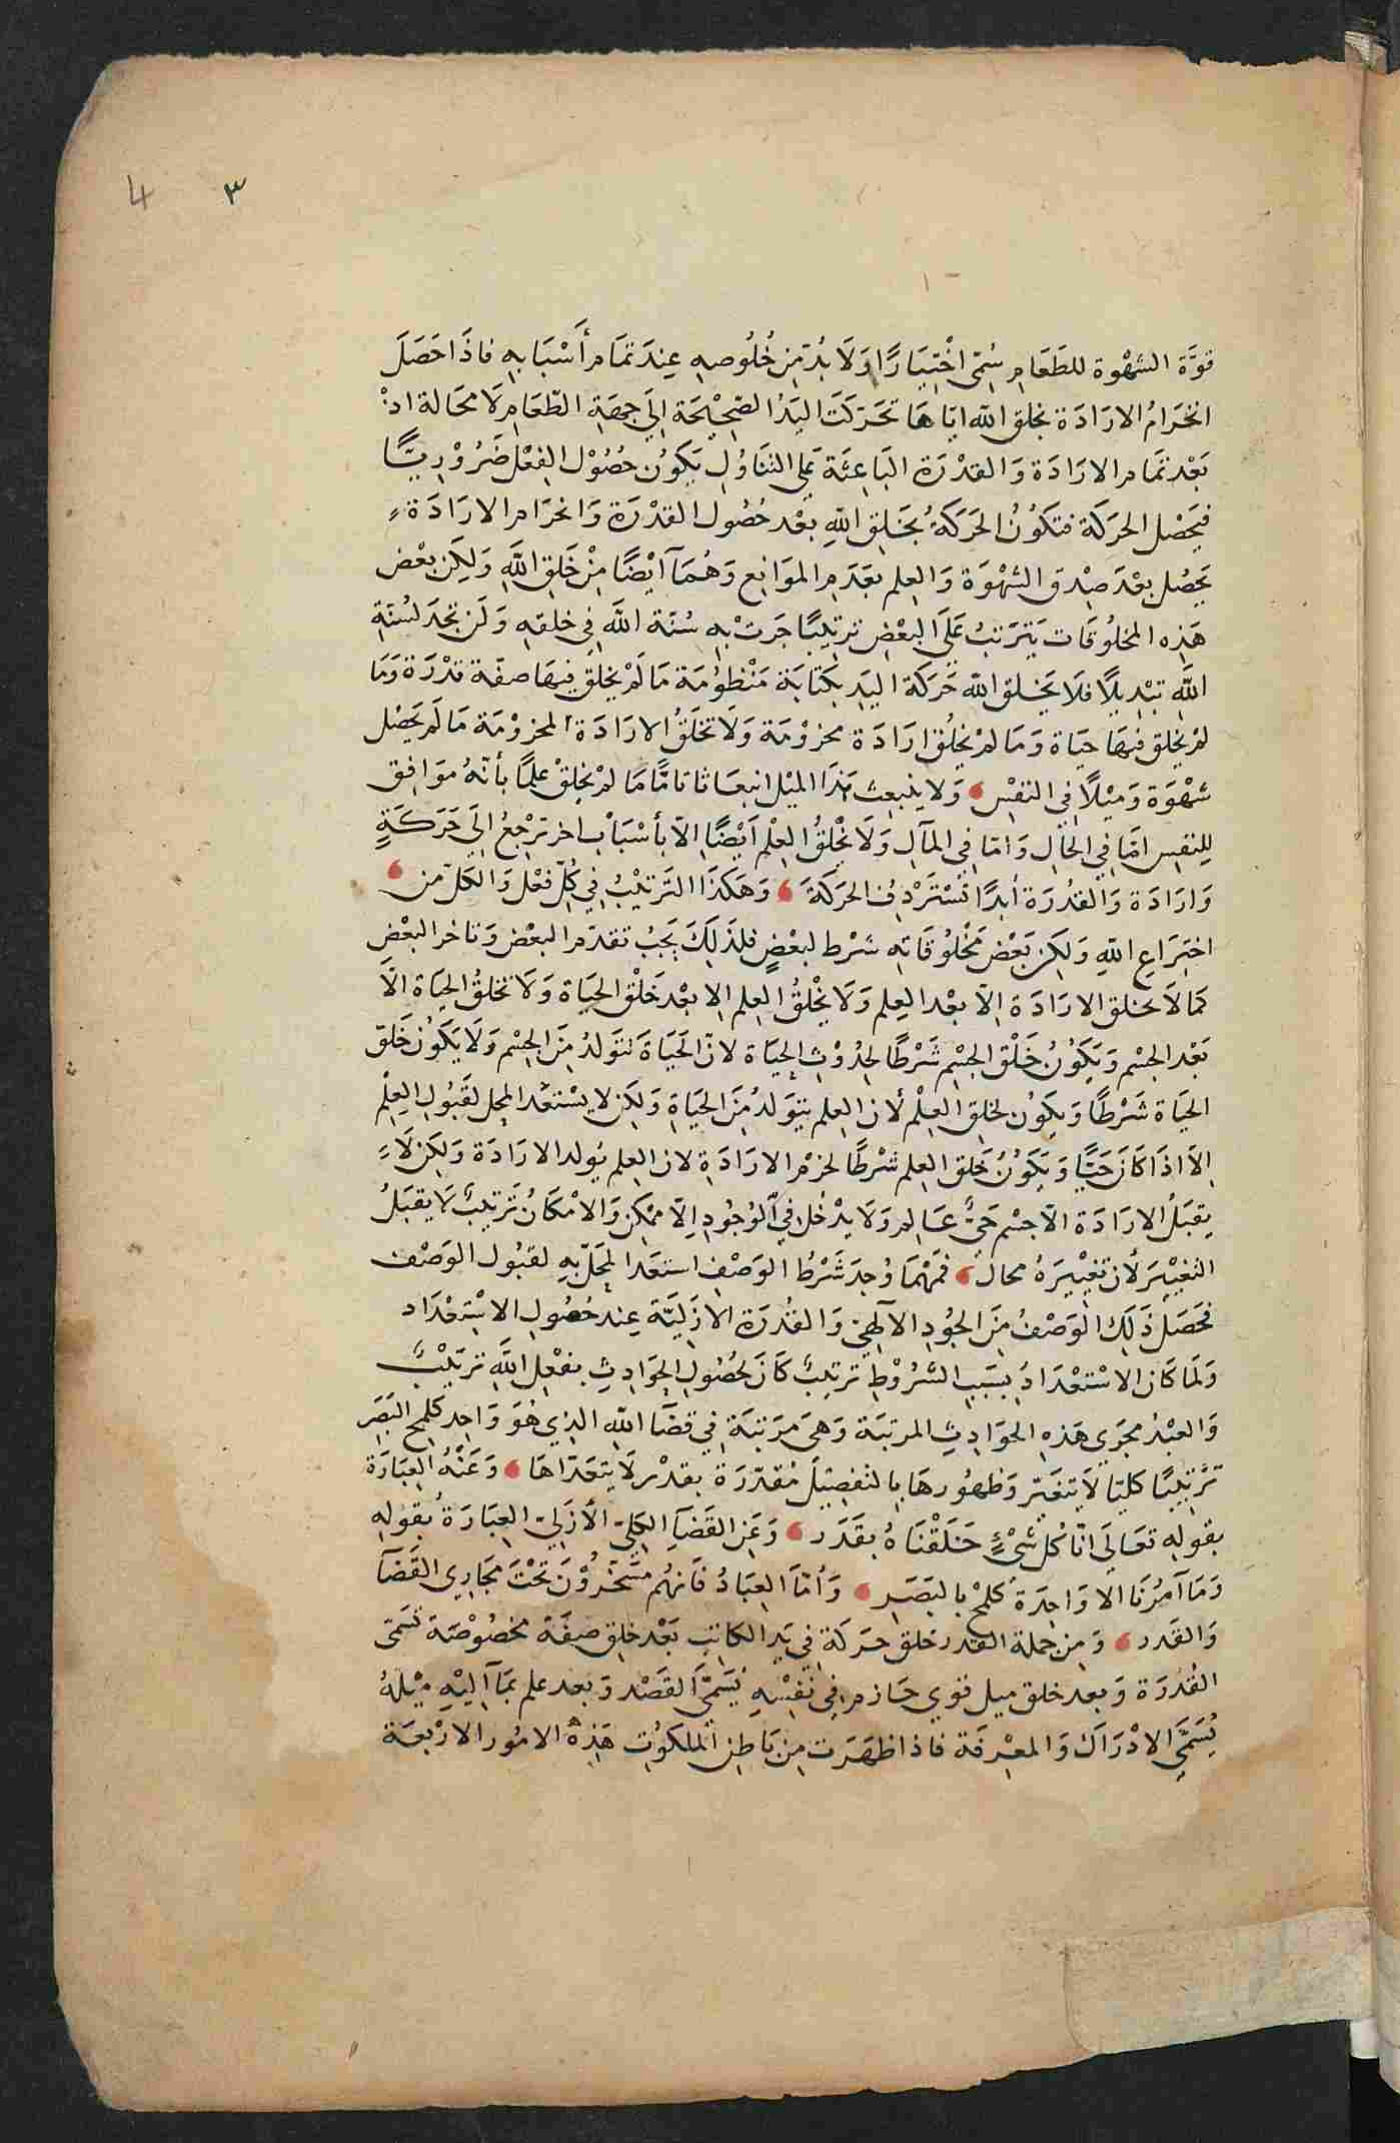 4 ٣
قوَّة الشهْوة للطَعَامِ سُمّى اخْتِيَارًا وَلَا بُدّ مِن خُلُوصِهِ عِندَ تمَام أَسْبَابِهِ فاذَا حَصَلَ
انخرَامُ الارَادَة بخلق الله ايّاهَا تحَرَكَتَ اليَدُ الصَحِيْحَة اِلَى جِهَةِ الطّعَامِ لَا محَالة اذْ
بَعْد تمَام الارَادَة وَالقدْرَة البَاعِثَة عَلى التنَاوُلِ يَكوُن حُصُوْل الفِعْل ضَرُوْرِيًّا
فيَحَصْل الحرَكَة فتكَوُنُ الحَرَكَةُ بخَلِق اللهِ بعْد حُصُول القدْرَة وَانخرَام الارَادَة
يَحصُل بعْدَ صِدق الشهْوَة وَالعِلم بعَدَمِ الموَانِع وَهُمَا آيْضًا مِنْ خَلِق اللَّهِ وَلِكَن بعْض
هَذِه المخلُوقَات يَتَرَتبُ عَلَى البعْضِ ترتِيبًا جَرَتْ بِهِ سُنّة اللَّه فِى خلقِهِ وَلَن تجَدَ لسُنّةِ
اللهِ تبْدِيلًا فلَا يَخلق الله حَرَكَة اليَدِ بكتَابَة مَنْظوُمَة مَا لَمْ يخلقْ فيهَا صفّة قدْرَة وَمَا
لمْ يَخلق فيهَا حيَاة وَمَا لمْ يخلُق ارَادَة مجزوْمَة وَلَا تخلَقُ الارَادَة المجزوْمَة مَا لَم يَحصْل
شهْوَة وَمَيْلًا فِى النفِسْ، وَلا ينبعِث هَذَا الميْل انبعَاثا تامًّا مَا لمْ يخلِقْ عِلمًا بأنّهُ موَافِق
لِلنفِس امّا فِي الحَالِ وَامّا فِي المآلِ وَلَا يخْلِقُ العِلْم آيْضًا الّا بأسْبَابْ اخر ترْجعُ اِلَى حَرَكَةٍ
وَارَادَة وَالقدُرَة أبدًا تسْتَرْدِف الحرَكَةَ، وَهَكذَا التَرتيْبُ فِى كُلّ فعْل وَالكلّ من،
اختِرَاعِ اللهِ وَلِكَن بَعْض مَخْلُوقَاتِهِ شرْط لبعْضٍ فلذَلِكَ يَجِبُ تقدّم البعْض وَتاخر البعْضِ
كمَا لَا يخلق الارَادَة الّا بعْد العِلم وَلَا يخْلِقُ العِلم الا بعْد خَلْق الحيَاة وَلَا تخلقُ الحيَاة الّا
بَعْد الجسْم وَيكَوُنُ خَلْق الجِسْم شَرْطًا لحِدُوْثِ الحِيَاة لانّ الحَيَاةَ تتوَلدُ مِنَ الجِسْم وَلَا يَكَوُن خَلق
الحيَاة شَرْطًا وَيكَوُن لخلِق العِلْم لأن العِلم يتِوَلدُ مِنَ الحيَاةِ وَلِكَن لا يسْتعْد المحَل لقَبُولِ العِلْم
اِلا اذَا كَانَ حَيًّا وَيَكوُنُ خَلق العِلم شرْطًا لجزْم الارَادَةِ لان العِلم يُولد الارَادَة وَلكِن لَا
يقبَلُ الارَادَة الّا جسْم حَيٌّ عَالم وَلَا يدْخل فِي الوُجُودِ اِلّا ممْكِن وَالامْكَانُ تَرتيبٌ لَا يقبَلُ
التغيْيِرَ لأن تغيْيِرَهُ محَالٌ، فمَهْمَا وُجدَ شَرْطُ الوَصْفِ استعَد المحَلّ بِهِ لقبُول الوَصْف
فحَصَلَ ذَلِكَ الوَصْفُ مِنَ الجُودِ الآلهِىّ وَالقدُرَة الازَليّة عِند حُصُولِ الاسْتِعْدَاد
وَلَما كَان الاسْتعْدَادُ بِسَببِ الشرُوْطِ ترتيبٌ كَانَ لحُصُولِ الحوَادِثِ بفعْلِ اللَّهِ ترتيْبٌ
وَالعبْدُ مجرَى هَذِهِ الحوَادِثِ المرتبَة وَهىَ مرَتبَة فِي قضَا الله الذِى هُوَ وَاحِد كلمِح البَصَرِ
تَرْتيبًا كليّا لَا يتغَيّر وَظهُورهَا بِالتفصِيْل مُقدّرَة بقدْر لَا يتعَدّاهَا، وَعَنْهُ العِبَارَة
بقولِهِ تعَالَى انّا كُل شىْءٍ خَلَقْنَاهُ بقَدَر، وَعَن القَضَآ الكِلىّ الأزَليّ العِبَارَةُ بقولهِ
وَمَا آمْرُنَا الا وَاحِدَةٌ كلمْحٍ بالبَصَرِ، وَأمّا العِبَادُ فَانهُم مُسَخّرُوْنَ تحْتَ مجَارِى القَضَآ
وَالقَدر، وَمِن جملة القدر خلق حرَكَةٍ فِي يَدِ الكاتِبِ بَعْد خلِق صِفَة مخصُوْصَة تسَمّى
القُدرَة وَبعد خلق ميل قوي جَازم فِى نفِسْهِ يُسَمّى القصْد وَبعد علم بمَا اليْهِ ميْلهُ
يُسَمّى الادْرَاك وَالمعْرفَة فاذا ظهَرَت مِن بَاطِن الملكوُتِ هَذِه الامُور الارْبعَة